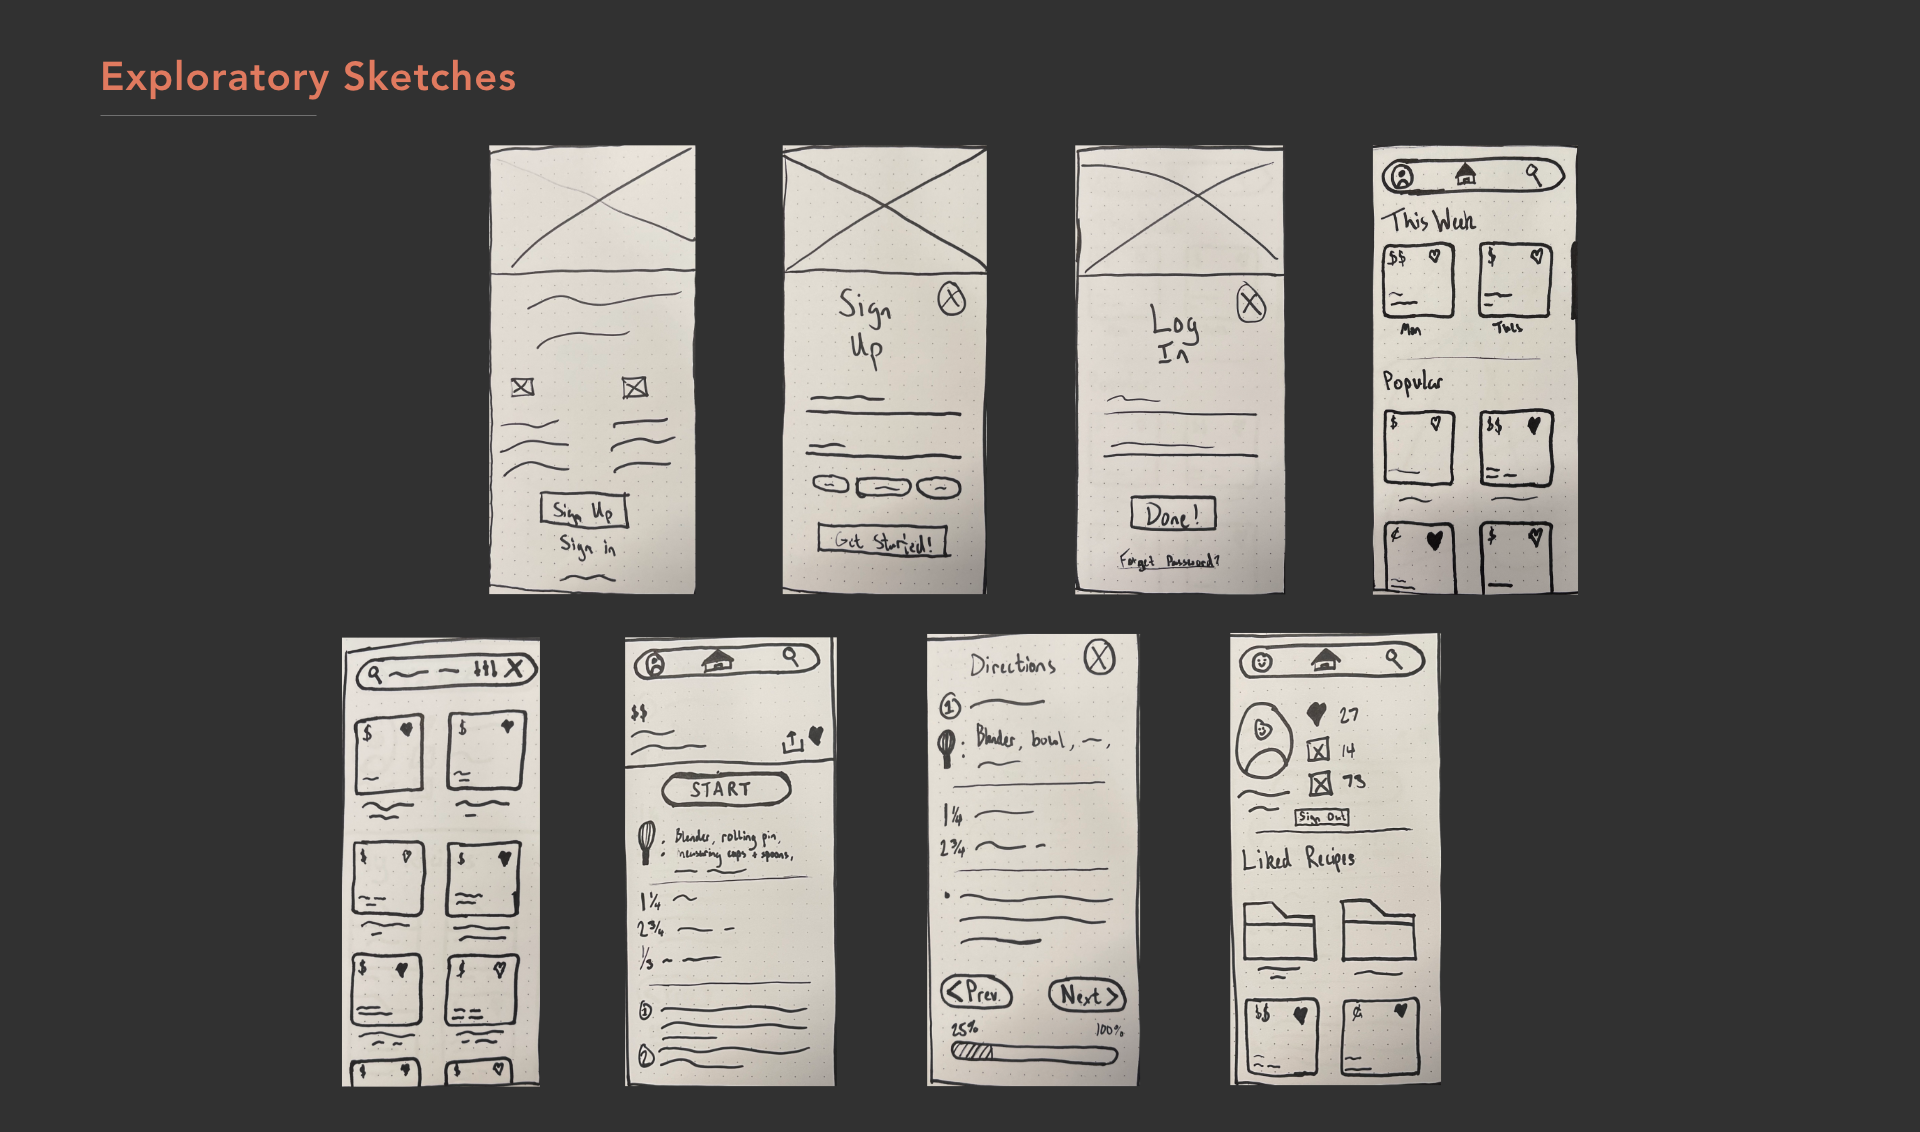 Exploratory Sketches
Sign Up
Sign in
Sign
Up
Get Started!
Log
In
Done!
Forget Password?
This Week
$$
$
Mon
Tues
Popular
$
$$
¢
$
$
$
$
$
$
$
$
$
$$
START
Blender, rolling pin,
measuring cups + spoons,
1 1/4
2 3/4
1/3
1
2
Directions
1
Blender, bowl,
1 1/4
2 3/4
< Prev.
Next >
25%
100%
27
14
73
Sign Out
Liked Recipes
$$
¢